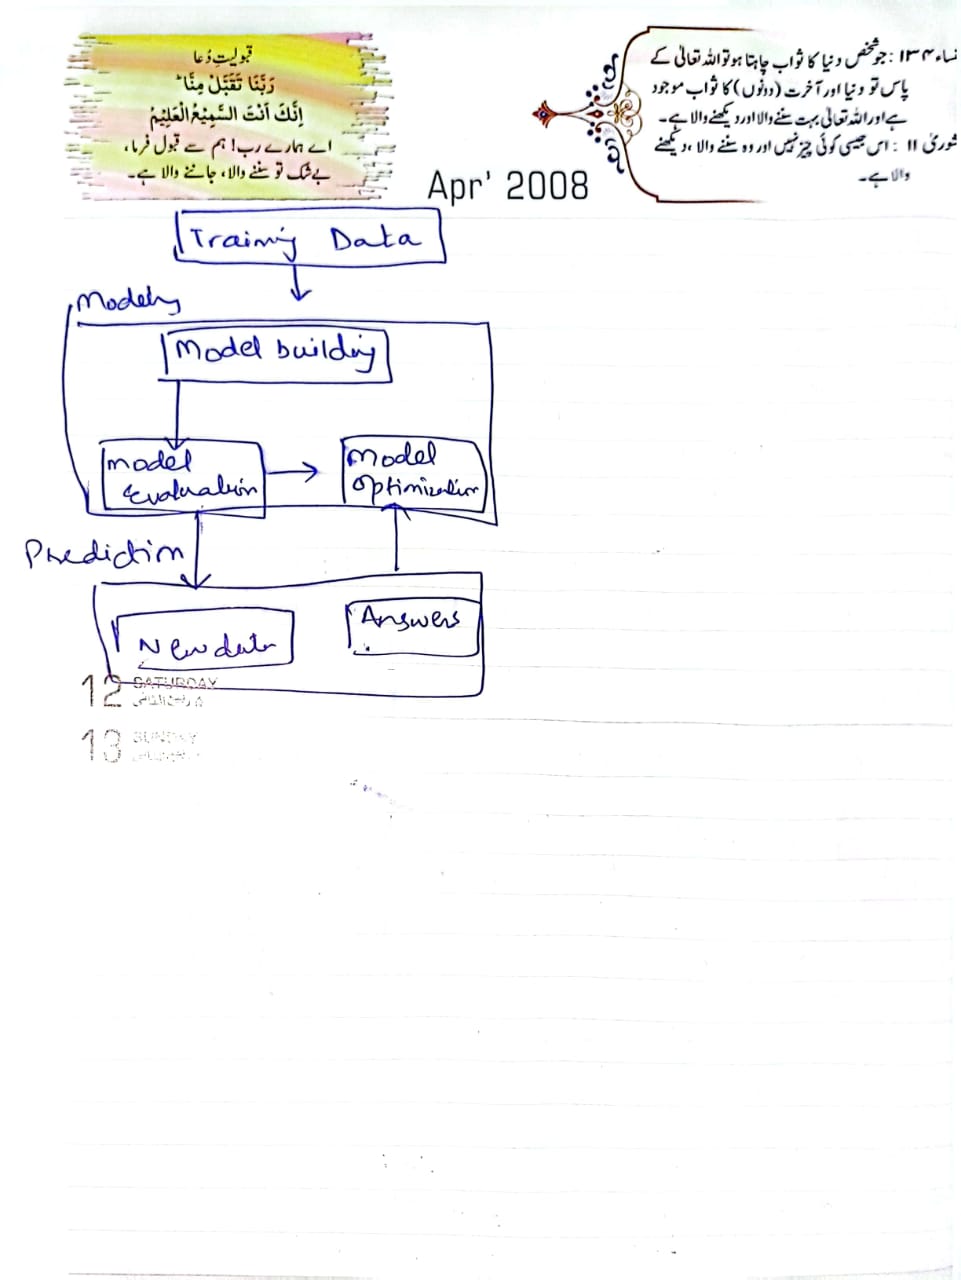 قبولیتِ دُعا
رَبَّنَا تَقَبَّلْ مِنَّا ؕ
اِنَّكَ اَنْتَ السَّمِيْعُ الْعَلِيْمُ
اے ہمارے رب! ہم سے قبول فرما،
بے شک تو سننے والا، جاننے والا ہے۔
نساء ۱۳۴ : جو شخص دنیا کا ثواب چاہتا ہو تو اللہ تعالیٰ کے
پاس تو دنیا اور آخرت (دونوں) کا ثواب موجود
ہے اور اللہ تعالیٰ بہت سننے والا اور دیکھنے والا ہے۔
شوریٰ ۱۱ : اس جیسی کوئی چیز نہیں اور وہ سننے والا، دیکھنے
والا ہے۔
Apr' 2008
Training Data
Modeling
Model building
Model
Evaluation
Model
Optimization
Prediction
New data
Answers
12 SATURDAY
13 SUNDAY